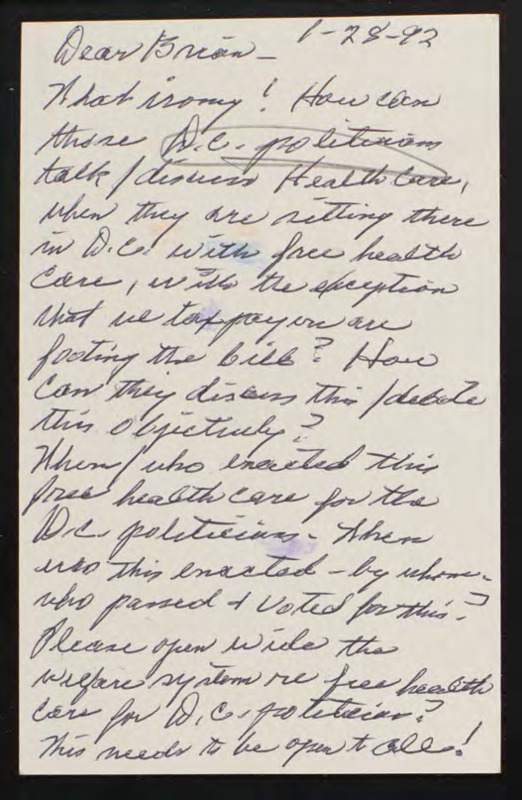 1-28-92
Dear Brian -
What irony! How can
those D.C. politicians
talk/discuss Health Care,
when they are sitting there
in D.C. with free health
care, with the exception
that we taxpayers are
footing the bill? How
can they discuss this/debate
this objectively?
When/who enacted this
free health care for the
D.C. politicians - When
was this enacted - by whom -
who passed + voted for this?
Please open wide the
welfare system re free health
care for D.C. politician?
This needs to be open to all!